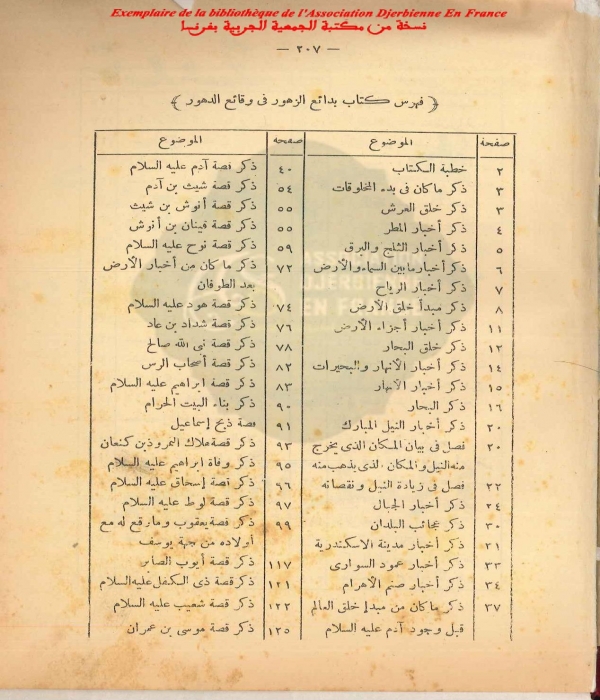 Exemplaire de la bibliothèque de l'Association Djerbienne En France
نسخة من مكتبة الجمعية الجربية بفرنسا
— ٢٠٧ —
﴿ فهرس كتاب بدائع الزهور فى وقائع الدهور ﴾
صفحة الموضوع
٢ خطبة الكتاب
٣ ذكر ما كان فى بدء المخلوقات
٣ ذكر خلق العرش
٤ ذكر أخبار المطر
٥ ذكر أخبار الثلج والبرق
٦ ذكر أخبار ما بين السماء والأرض
٧ ذكر أخبار الرياح
٨ ذكر مبدأ خلق الأرض
١١ ذكر أخبار أجزاء الأرض
١٢ ذكر خلق البحار
١٤ ذكر أخبار الأنهار والبحيرات
١٥ ذكر أخبار الآبار
١٦ ذكر البحار
٢٠ ذكر أخبار النيل المبارك
٢٠ فصل فى بيان المكان الذى يخرج
منه النيل والمكان الذى يذهب منه
٢٢ فصل فى زيادة النيل ونقصانه
٢٤ ذكر أخبار الجبال
٣٠ ذكر عجائب البلدان
٣١ ذكر أخبار مدينة الاسكندرية
٣٣ ذكر أخبار عمود السوارى
٣٤ ذكر أخبار صنم الأهرام
٣٧ ذكر ما كان من مبدإ خلق العالم
قبل وجود آدم عليه السلام
صفحة الموضوع
٤٠ ذكر قصة آدم عليه السلام
٥٤ ذكر قصة شيث بن آدم
٥٥ ذكر قصة أنوش بن شيث
٥٥ ذكر قصة قينان بن أنوش
٥٩ ذكر قصة نوح عليه السلام
٧٢ ذكر ما كان من أخبار الأرض
بعد الطوفان
٧٤ ذكر قصة هود عليه السلام
٧٦ ذكر قصة شداد بن عاد
٧٨ ذكر قصة نبى الله صالح
٨٢ ذكر قصة أصحاب الرس
٨٣ ذكر قصة ابراهيم عليه السلام
٩٠ ذكر بناء البيت الحرام
٩١ قصة ذبح إسماعيل
٩٣ ذكر قصة هلاك النمروذ بن كنعان
٩٥ ذكر وفاة ابراهيم عليه السلام
٩٦ ذكر قصة إسحاق عليه السلام
٩٧ ذكر قصة لوط عليه السلام
٩٩ ذكر قصة يعقوب وما وقع له مع
أولاده من جهة يوسف
١١٧ ذكر قصة أيوب الصابر
١٢١ ذكر قصة ذى الكفل عليه السلام
١٢٢ ذكر قصة شعيب عليه السلام
١٢٥ ذكر قصة موسى بن عمران
ASSOCIATION
DJERBIENNE
EN FRANCE